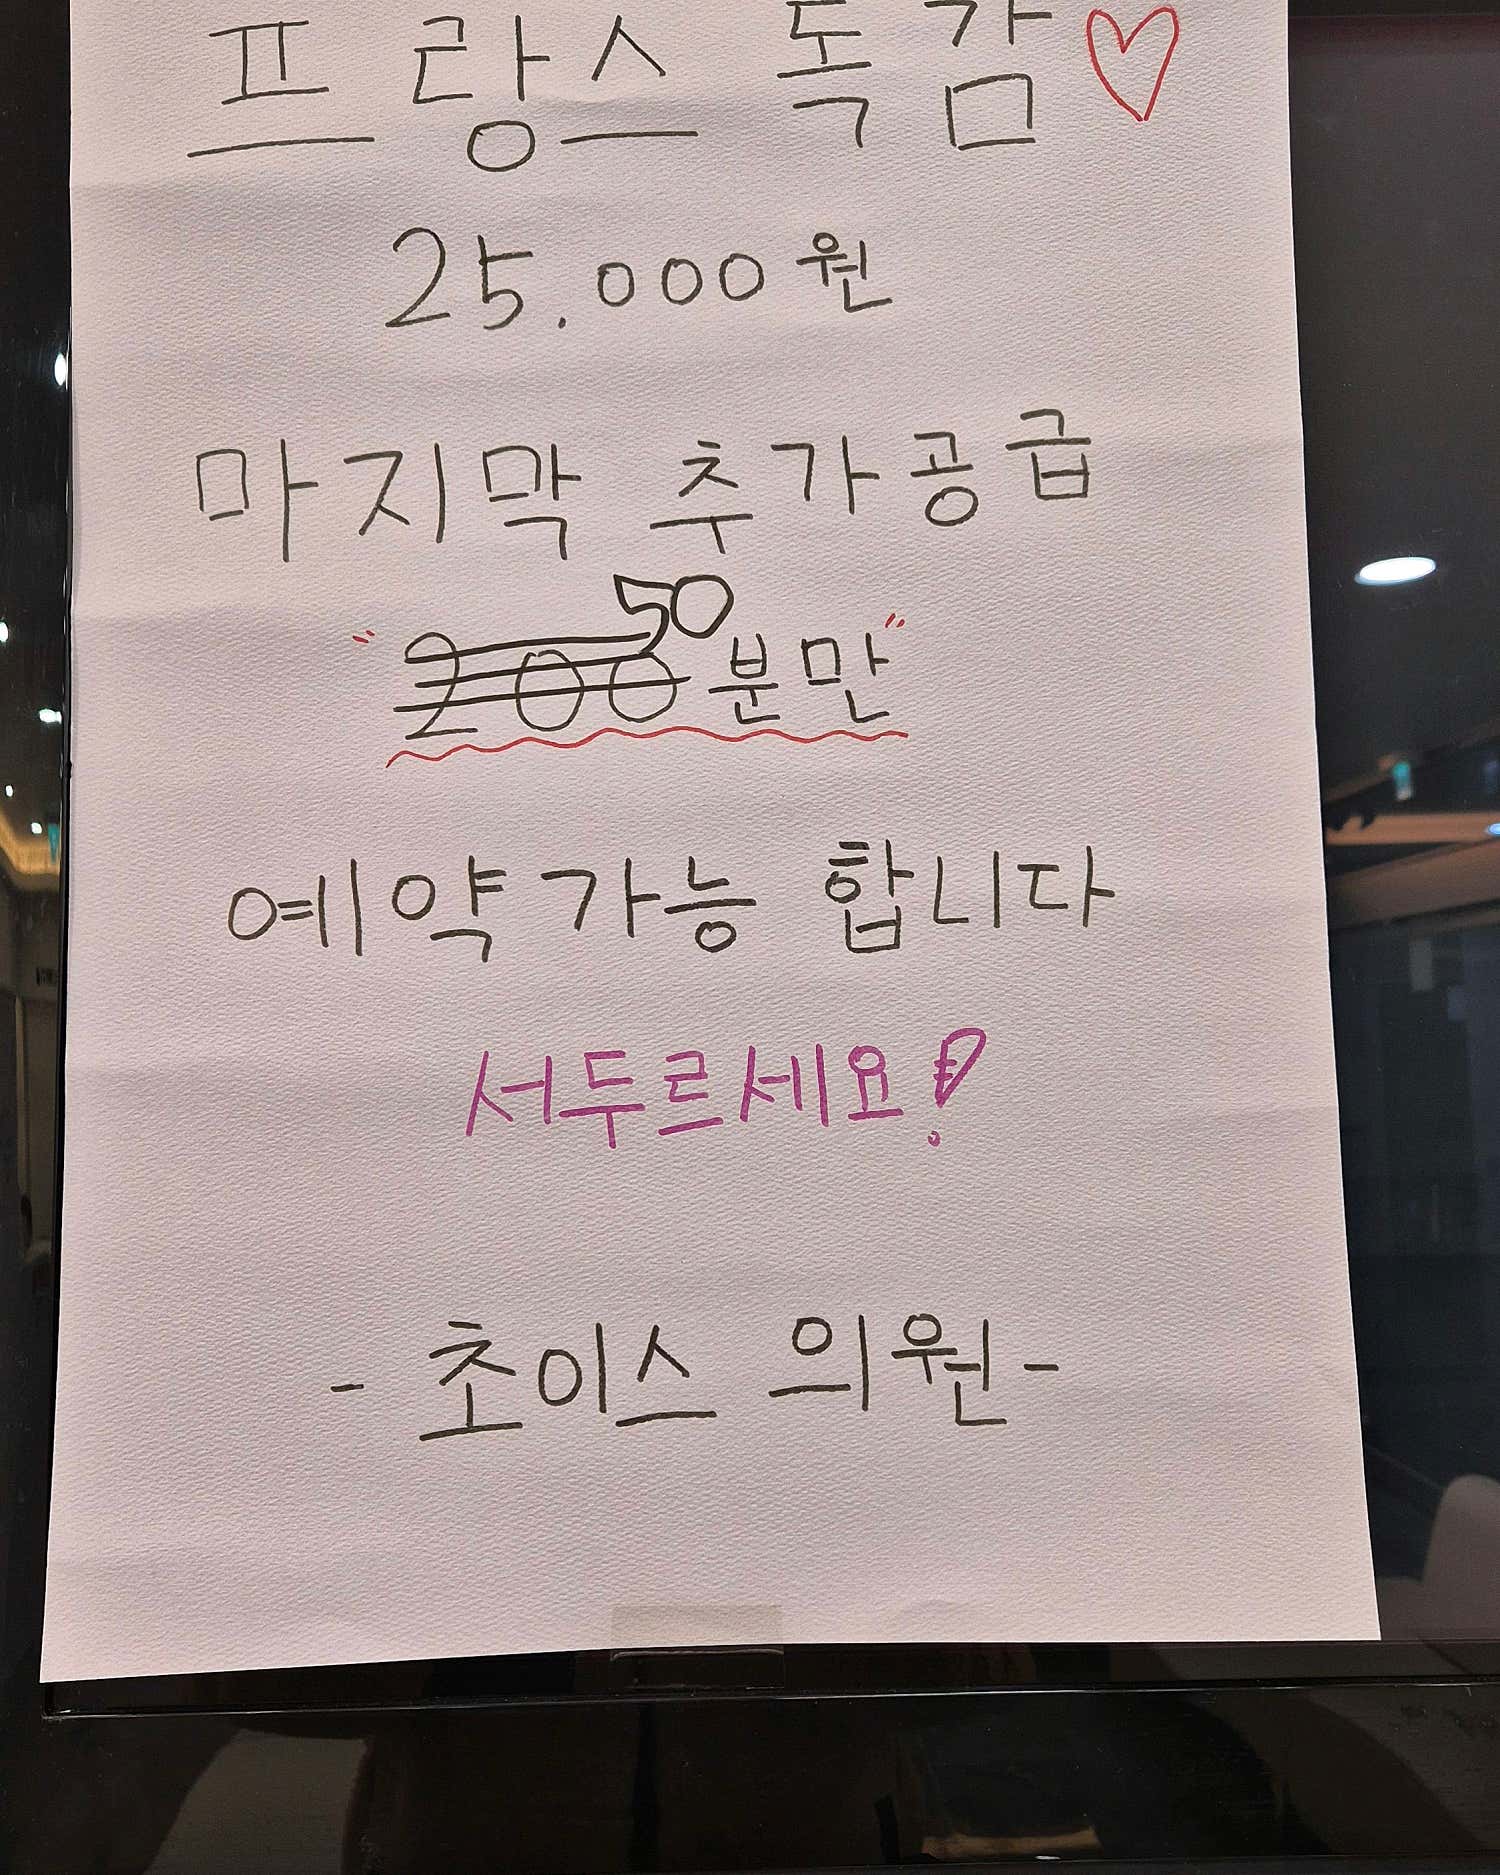 프랑스 독감♡
25.000원
마지막 추가공급
"200 50분만"
예약가능 합니다
서두르세요!
- 초이스 의원 -